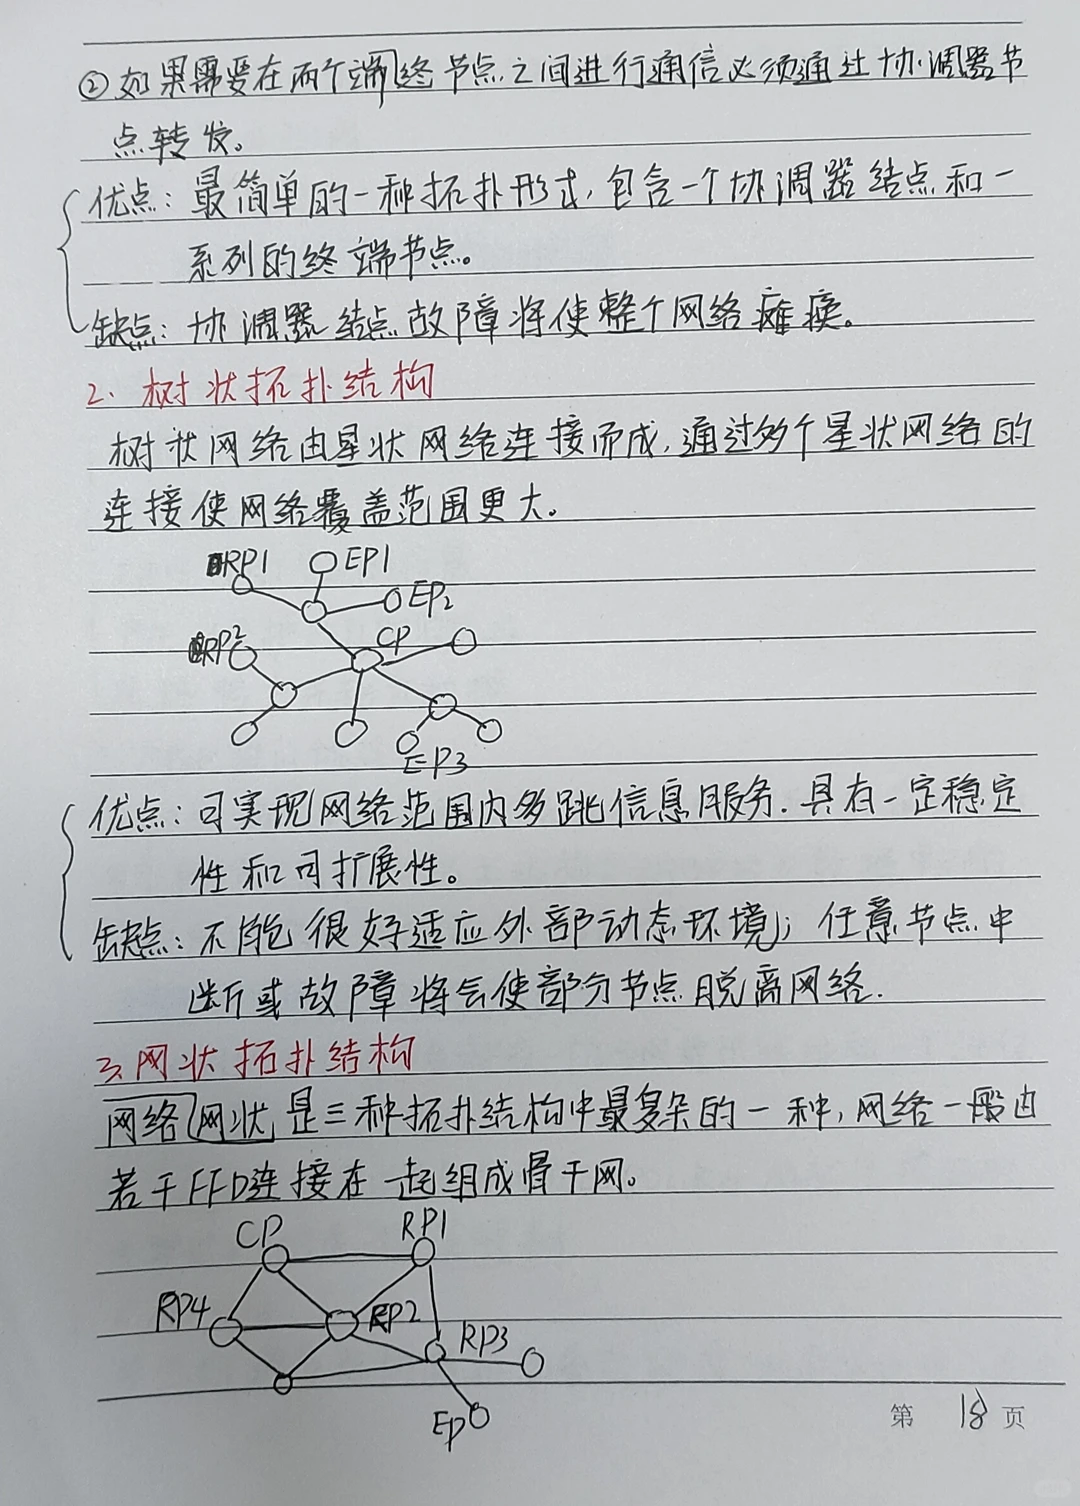 ②如果需要在两个端终节点之间进行通信必须通过协调器节
点转发。
优点：最简单的一种拓扑形式，包含一个协调器结点和一
系列的终端节点。
缺点：协调器结点故障将使整个网络瘫痪。
2. 树状拓扑结构
树状网络由星状网络连接而成，通过多个星状网络的
连接使网络覆盖范围更大。
RP1 EP1
EP2
RP2 CP
EP3
优点：可实现网络范围内多跳信息服务．具有一定稳定
性和可扩展性。
缺点：不能很好适应外部动态环境；任意节点中
断或故障将会使部分节点脱离网络．
3、网状拓扑结构
网络网状是三种拓扑结构中最复杂的一种，网络一般由
若干FFD连接在一起组成骨干网。
CP RP1
RP4 RP2
RP3
EP
第 18 页